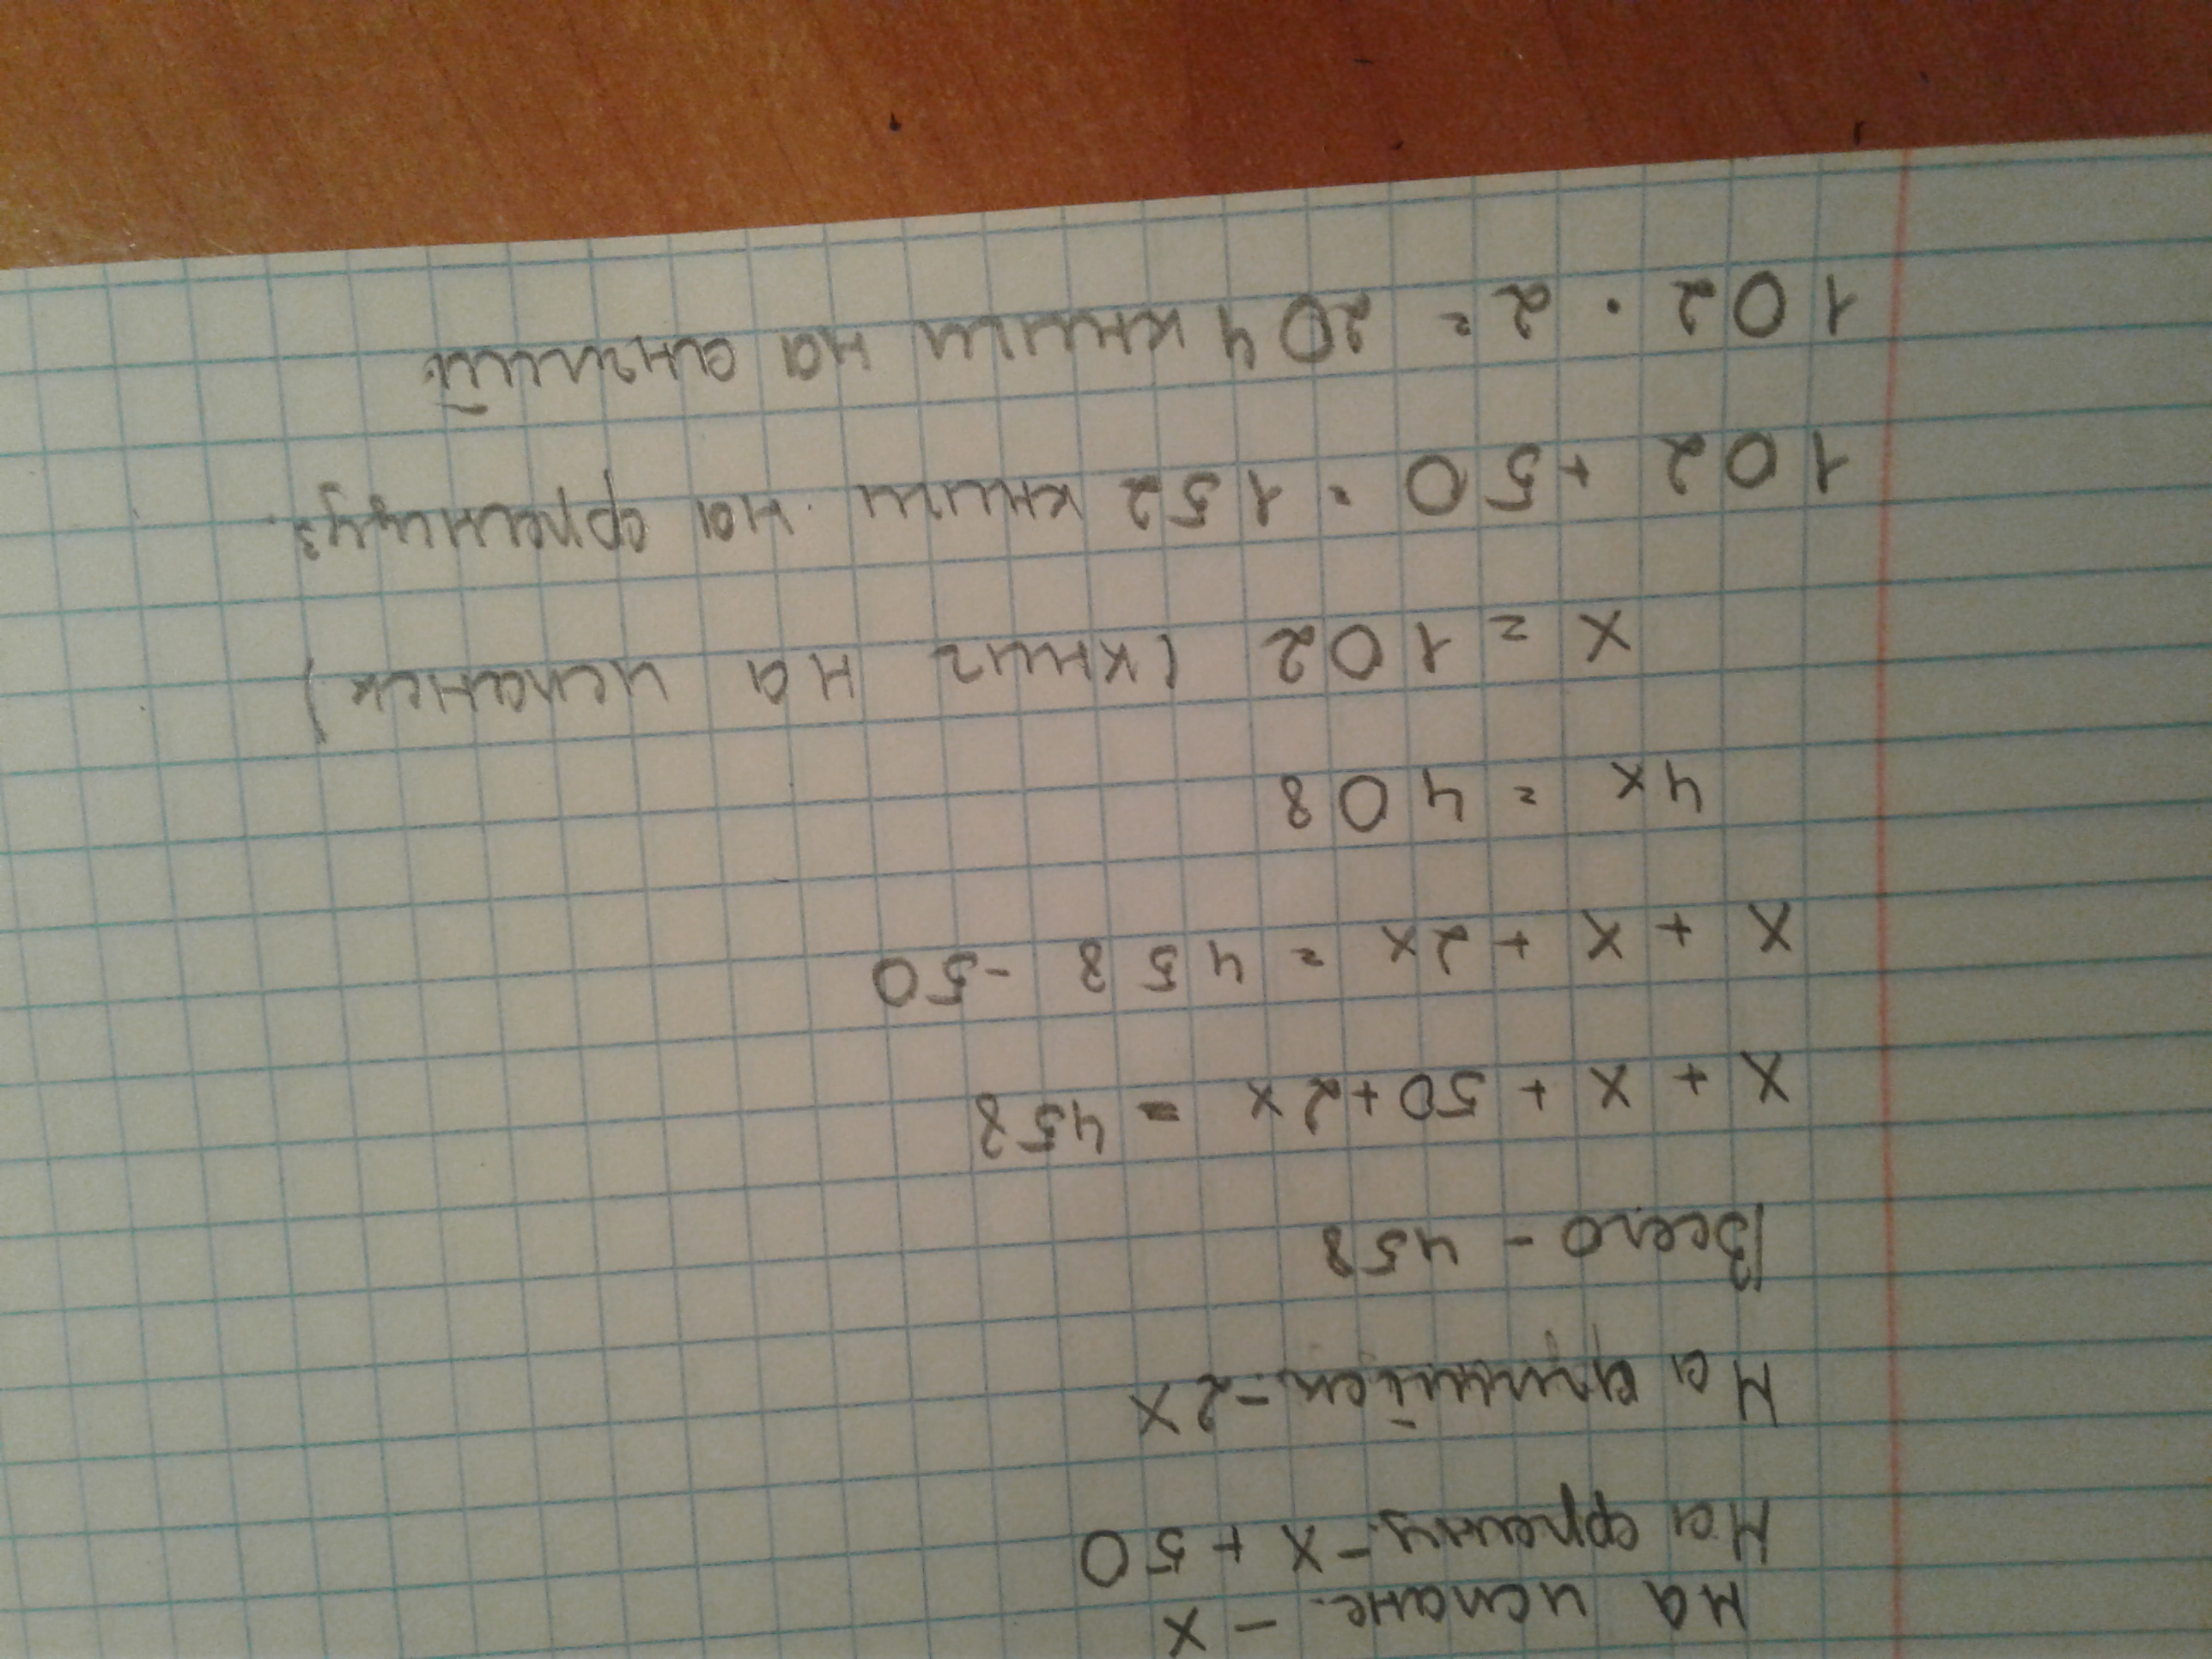 на испанс. - x
На францу. - x + 50
На английск. - 2x
Всего - 458
x + x + 50 + 2x = 458
x + x + 2x = 458 - 50
4x = 408
x = 102 (книг на испанск)
102 + 50 = 152 книги на француз.
102 · 2 = 204 книги на английс.